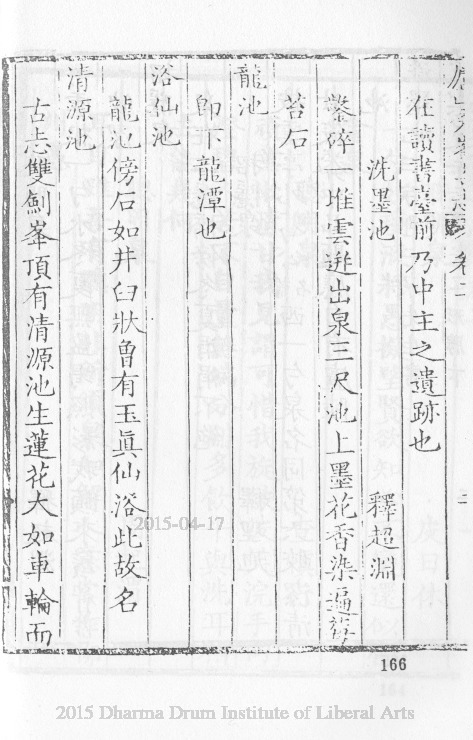 卷二
在讀書臺前乃中主之遺跡也
洗墨池 釋超淵
鑿碎一堆雲迸出泉三尺池上墨花香染遍碧
苔石
龍池
卽下龍潭也
浴仙池
龍池傍石如井臼狀曾有玉眞仙浴此故名
清源池
古志雙劍峯頂有清源池生蓮花大如車輪而
2015-04-17
166
2015 Dharma Drum Institute of Liberal Arts